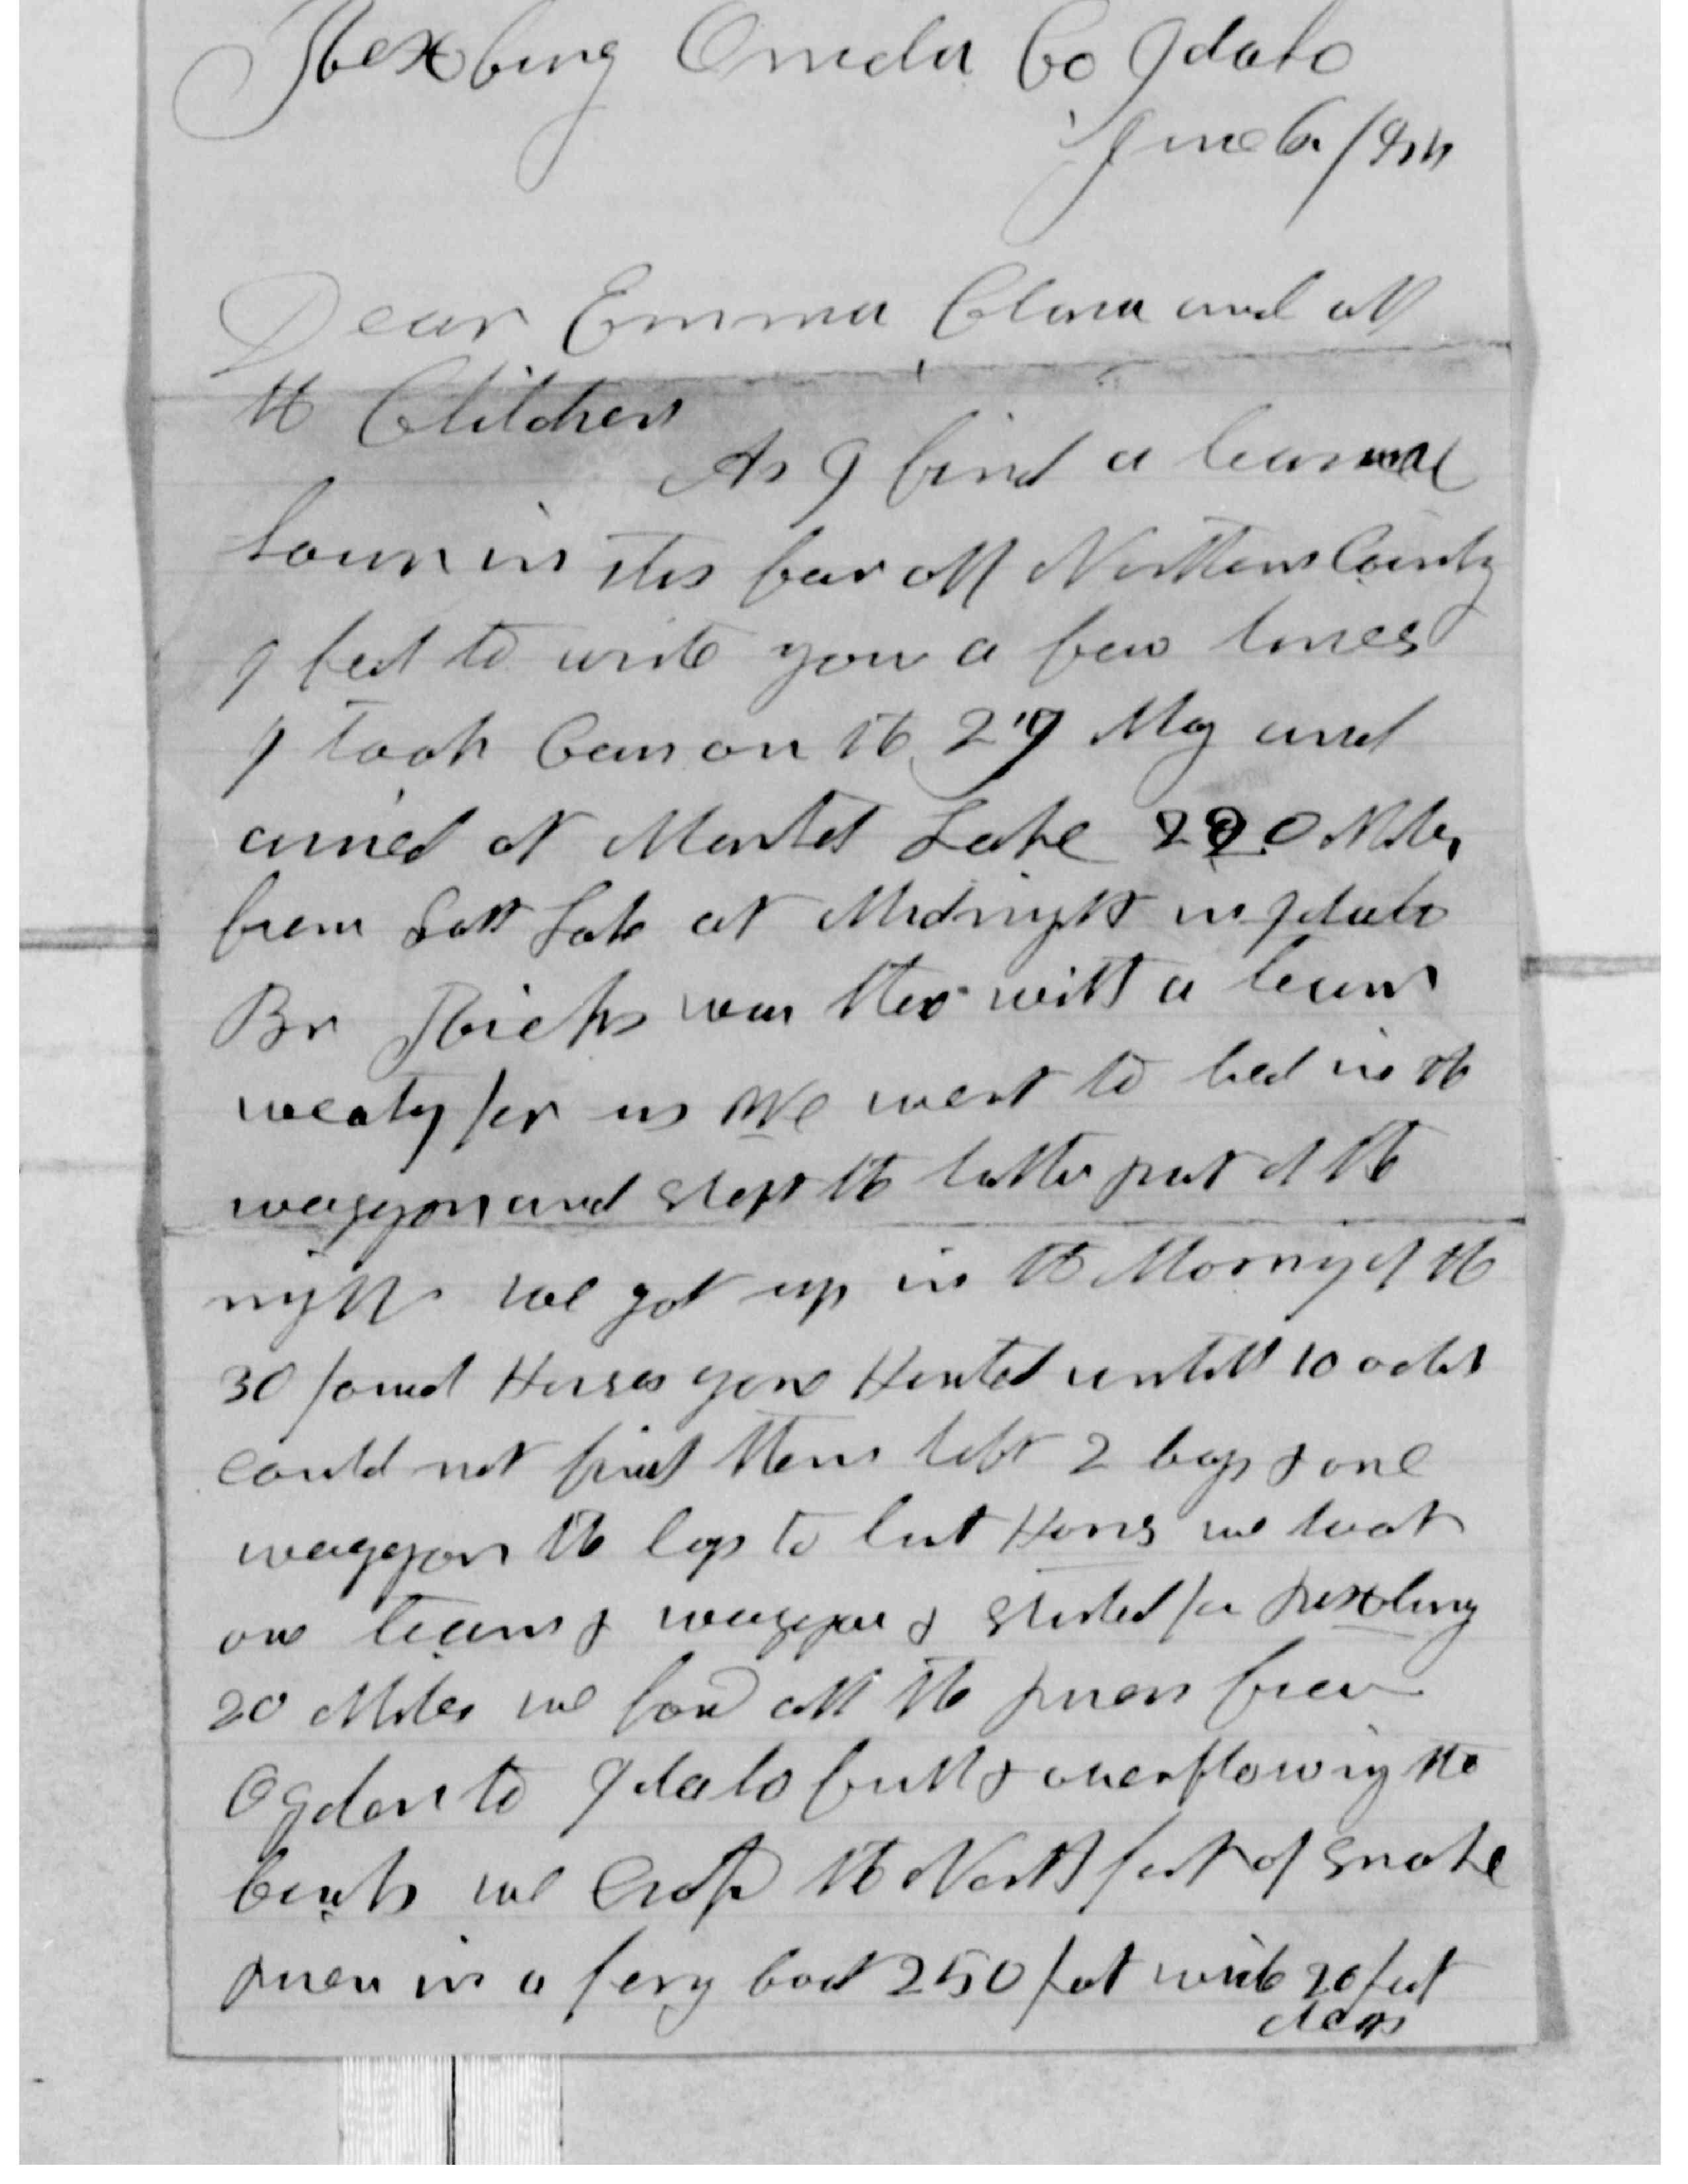 Rexburg Oneida Co Idaho
June 6 /84
Dear Emma Clara and all
the Children
As I find a leasure
hour in this far off Northern County
I feel to write you a few lines
I took Cars on the 29 May and
arived at Market Lake 220 Miles
from Salt Lake at Midnight in Idaho
Br Ricks was there with a team
ready for us We went to bed in the
waggon and slept the latter part of the
night we got up in the Morning of the
30 found Horses gone Hunted untill 10 oclk
could not find them left 2 boys & one
waggon the boys to hunt Horses we took
one team & waggon & started for Rexburg
20 Miles we found all the rivers from
Ogden to Idaho full & overflowing the
banks we Crosed the North fork of Snake
river in a fery boat 250 feet wide 20 feet
deep